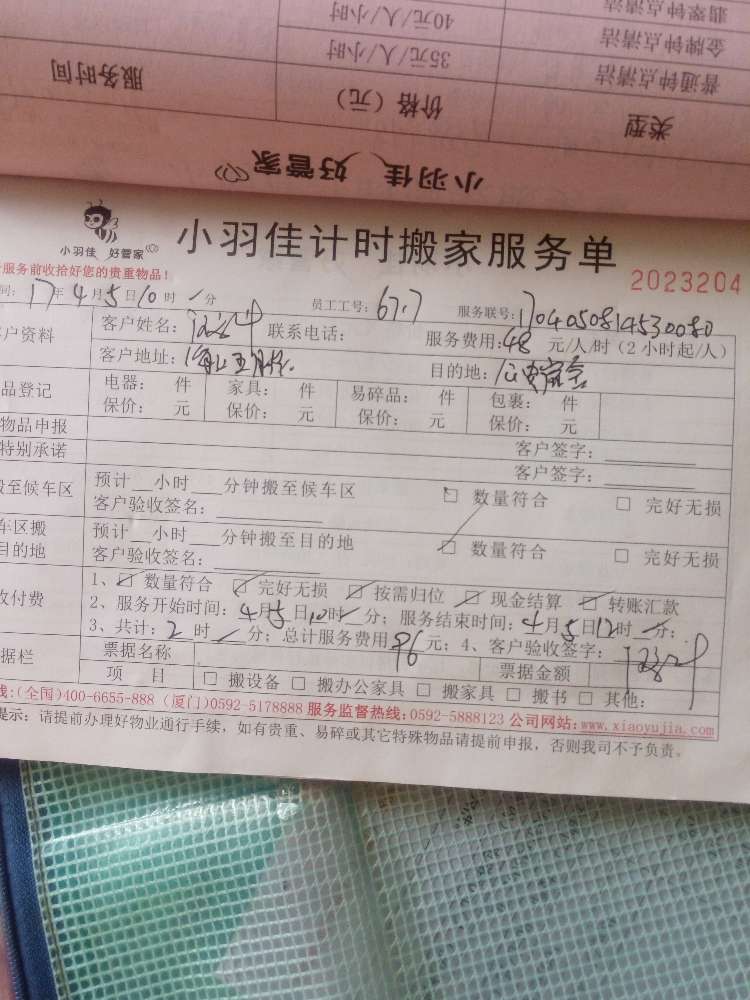 翡翠钟点清洁 40元/人/小时
金牌钟点清洁 35元/人/小时
普通钟点清洁
类型 价格（元） 服务时间
小羽佳 好管家
小羽佳 好管家
小羽佳计时搬家服务单
服务前收拾好您的贵重物品！
2023204
间：17年4月5日10时 分 员工工号：677 服务联号：1704050814530080
户资料 客户姓名： 联系电话： 服务费用：48 元/人/时（2小时起/人）
客户地址： 目的地：
品登记 电器： 件 家具： 件 易碎品： 件 包裹： 件
保价： 元 保价： 元 保价： 元 保价： 元
物品申报 客户签字：
特别承诺 客户签字：
至候车区 预计__小时__分钟搬至候车区 □ 数量符合 □ 完好无损
客户验收签名：
车区搬 预计__小时__分钟搬至目的地 □ 数量符合 □ 完好无损
目的地 客户验收签名：
收付费 1、☑ 数量符合 ☑ 完好无损 ☑ 按需归位 ☑ 现金结算 ☑ 转账汇款
2、服务开始时间：4月5日10时 分；服务结束时间：4月5日12时 分；
3、共计：2 时 分；总计服务费用 96 元；4、客户验收签字：
据栏 票据名称 票据金额
项 目 □ 搬设备 □ 搬办公家具 □ 搬家具 □ 搬书 □ 其他：
线：(全国)400-6655-888 (厦门)0592-5178888 服务监督热线：0592-5888123 公司网站：www.xiaoyujia.com
提示：请提前办理好物业通行手续，如有贵重、易碎或其它特殊物品请提前申报，否则我司不予负责。